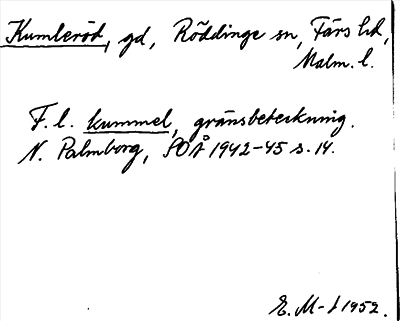 Kumleröd, gd, Röddinge sn, Färs hd,
Malm. l.
F. l. kummel, gränsbeteckning.
N. Palmborg, SOÅ 1942-45 s. 14.
E. M-t 1952.